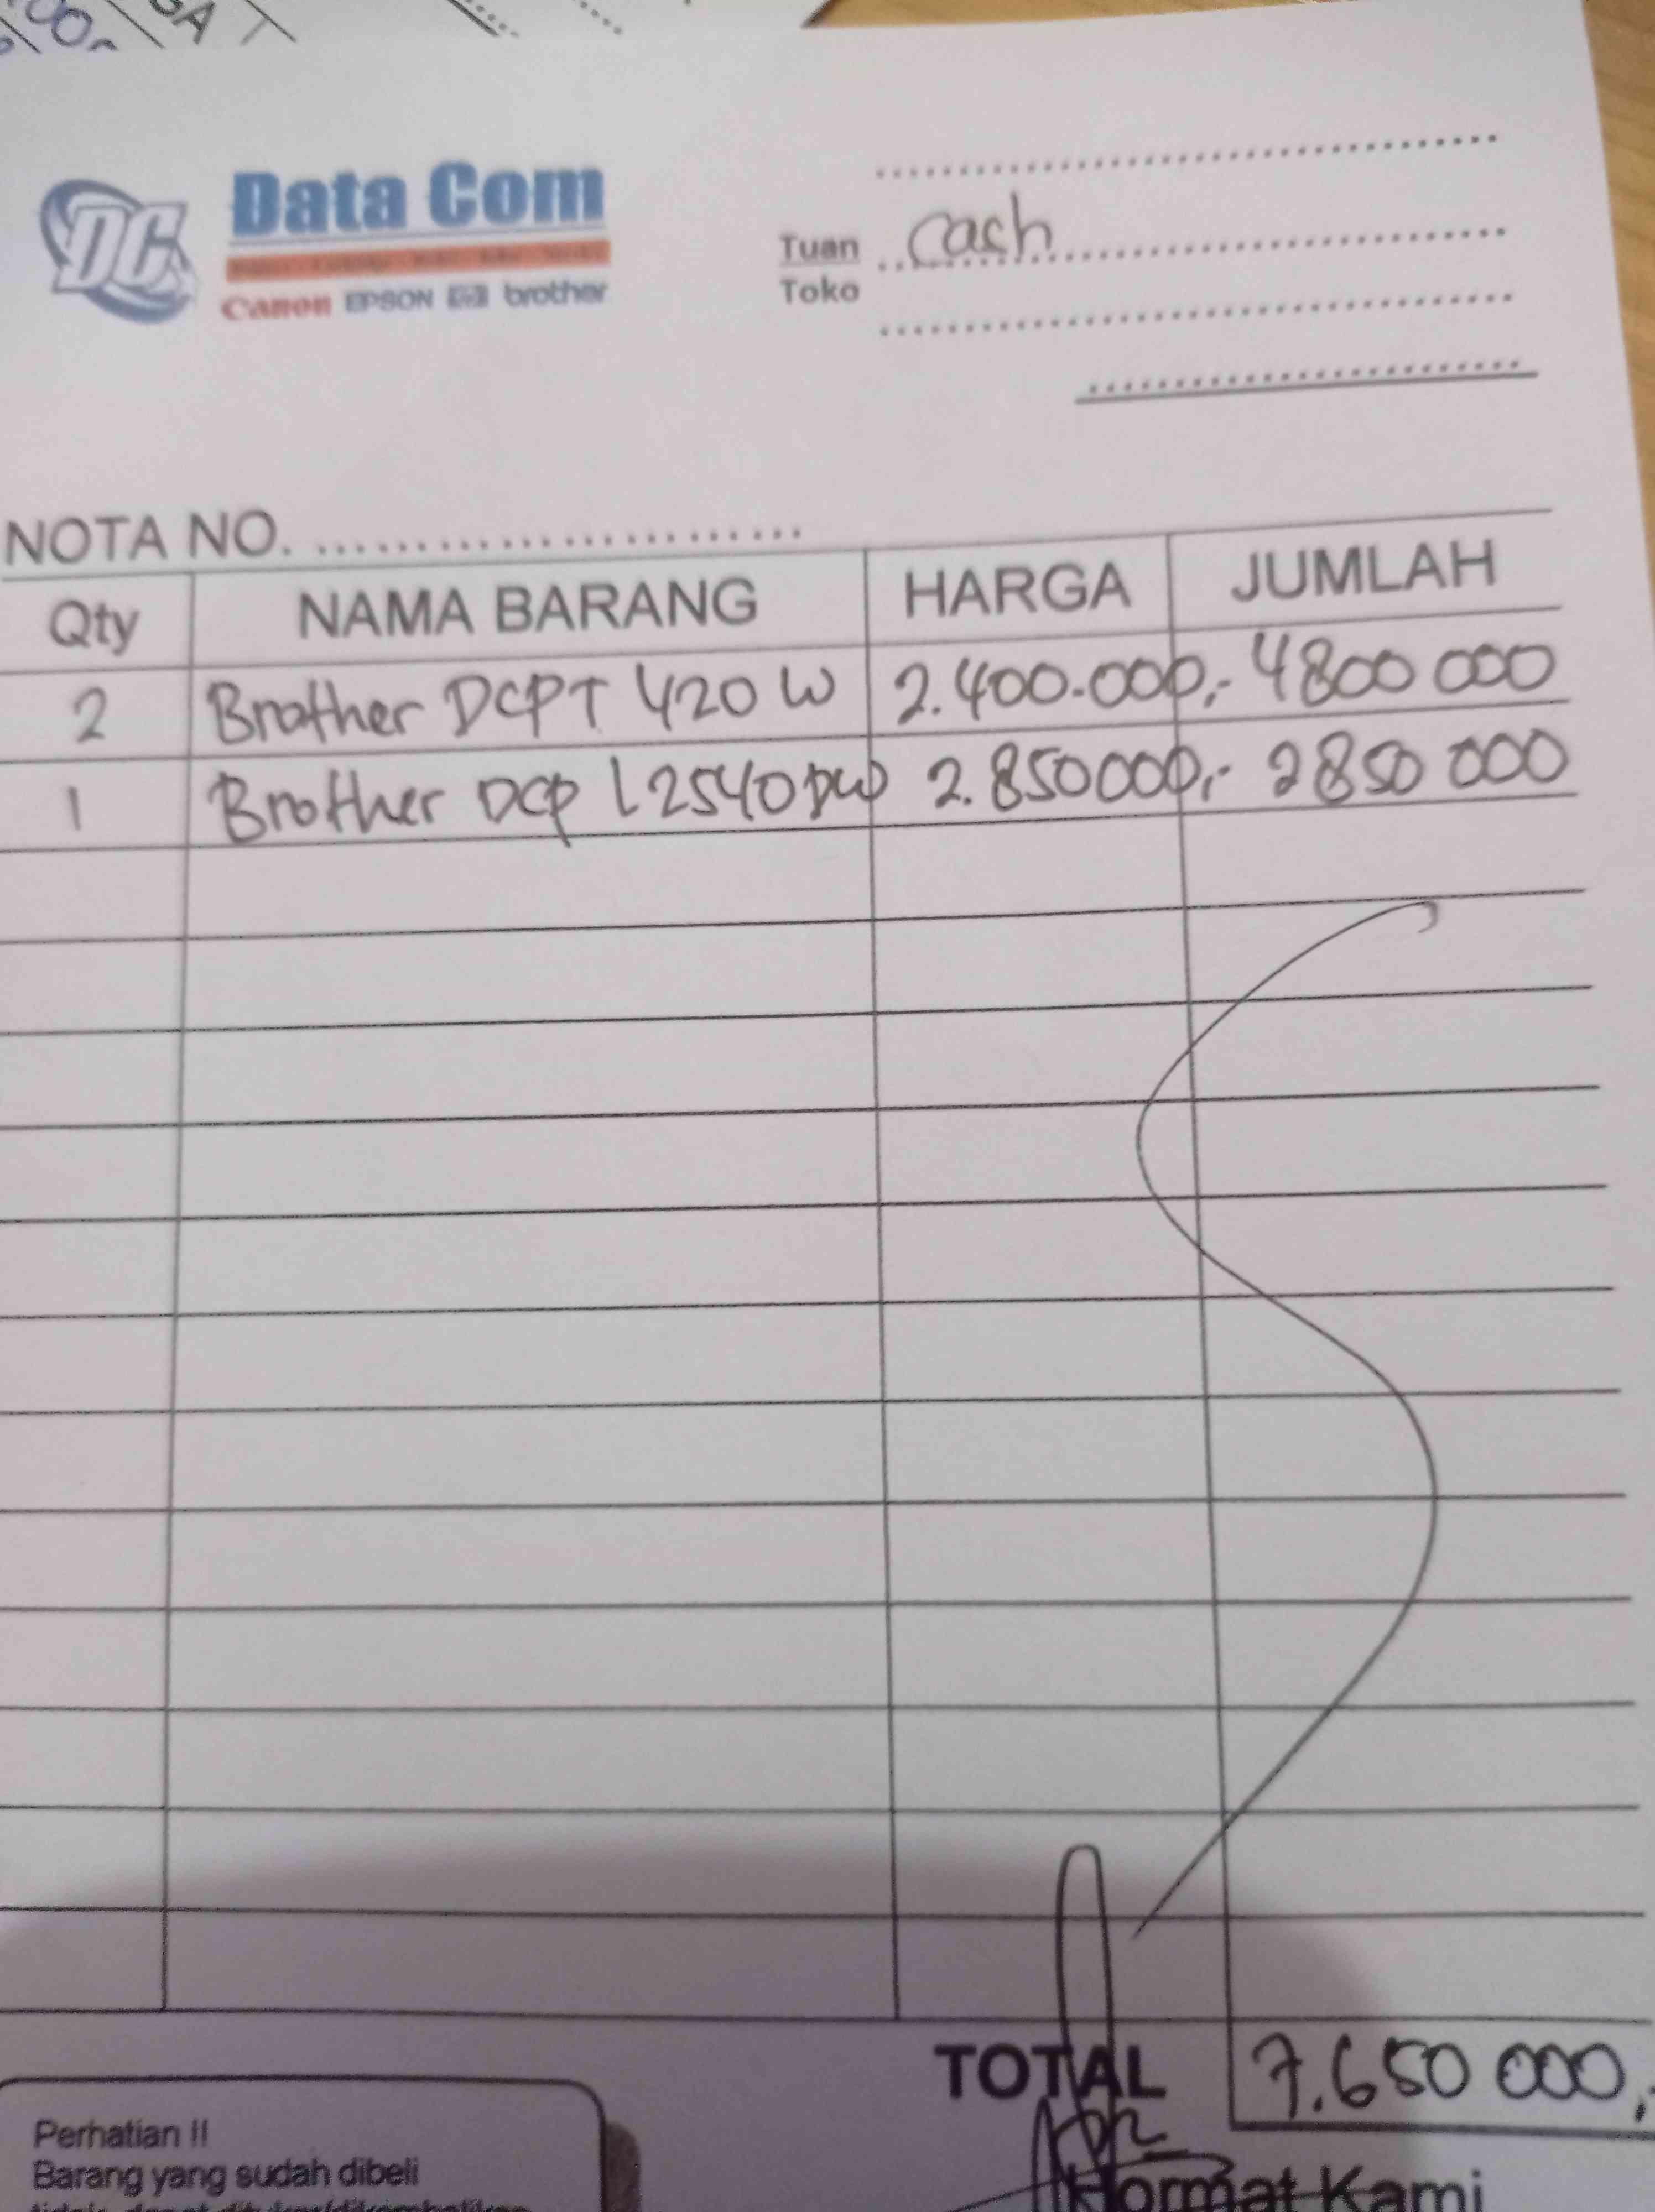 DC
Data Com
Canon EPSON hp brother
Tuan cash
Toko
NOTA NO.
Qty NAMA BARANG HARGA JUMLAH
2 Brother DCPT 420 W 2.400.000,- 4800 000
1 Brother DCP L2540DW 2.850000,- 2850 000
TOTAL 7.650 000,-
Hormat Kami
Perhatian !!
Barang yang sudah dibeli